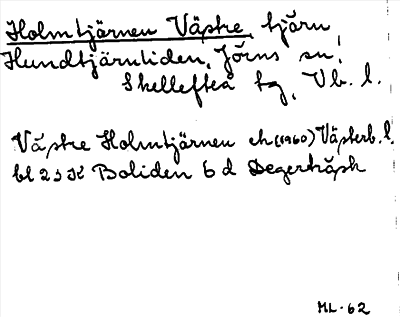 Holmtjärnen Västre, tjärn,
Hundtjärnliden, Jörns sn,
Skellefteå tg, Vb. l.
Västre Holmtjärnen ek (1960) Västerb. l.
bl 23 K Boliden 6 d Degerträsk
ML-62